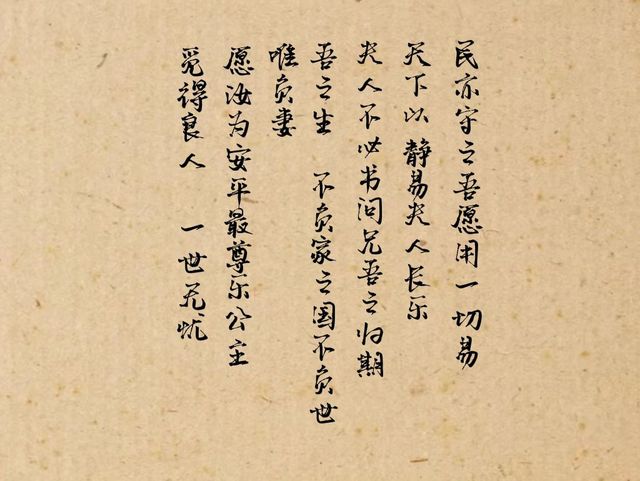 民亦守之吾愿用一切易
天下以 静易夫人长乐
夫人不必书问兄吾之归期
吾之生 不负家之国不负世
唯负妻
愿汝为安平最尊乐公主
觅得良人 一世无忧